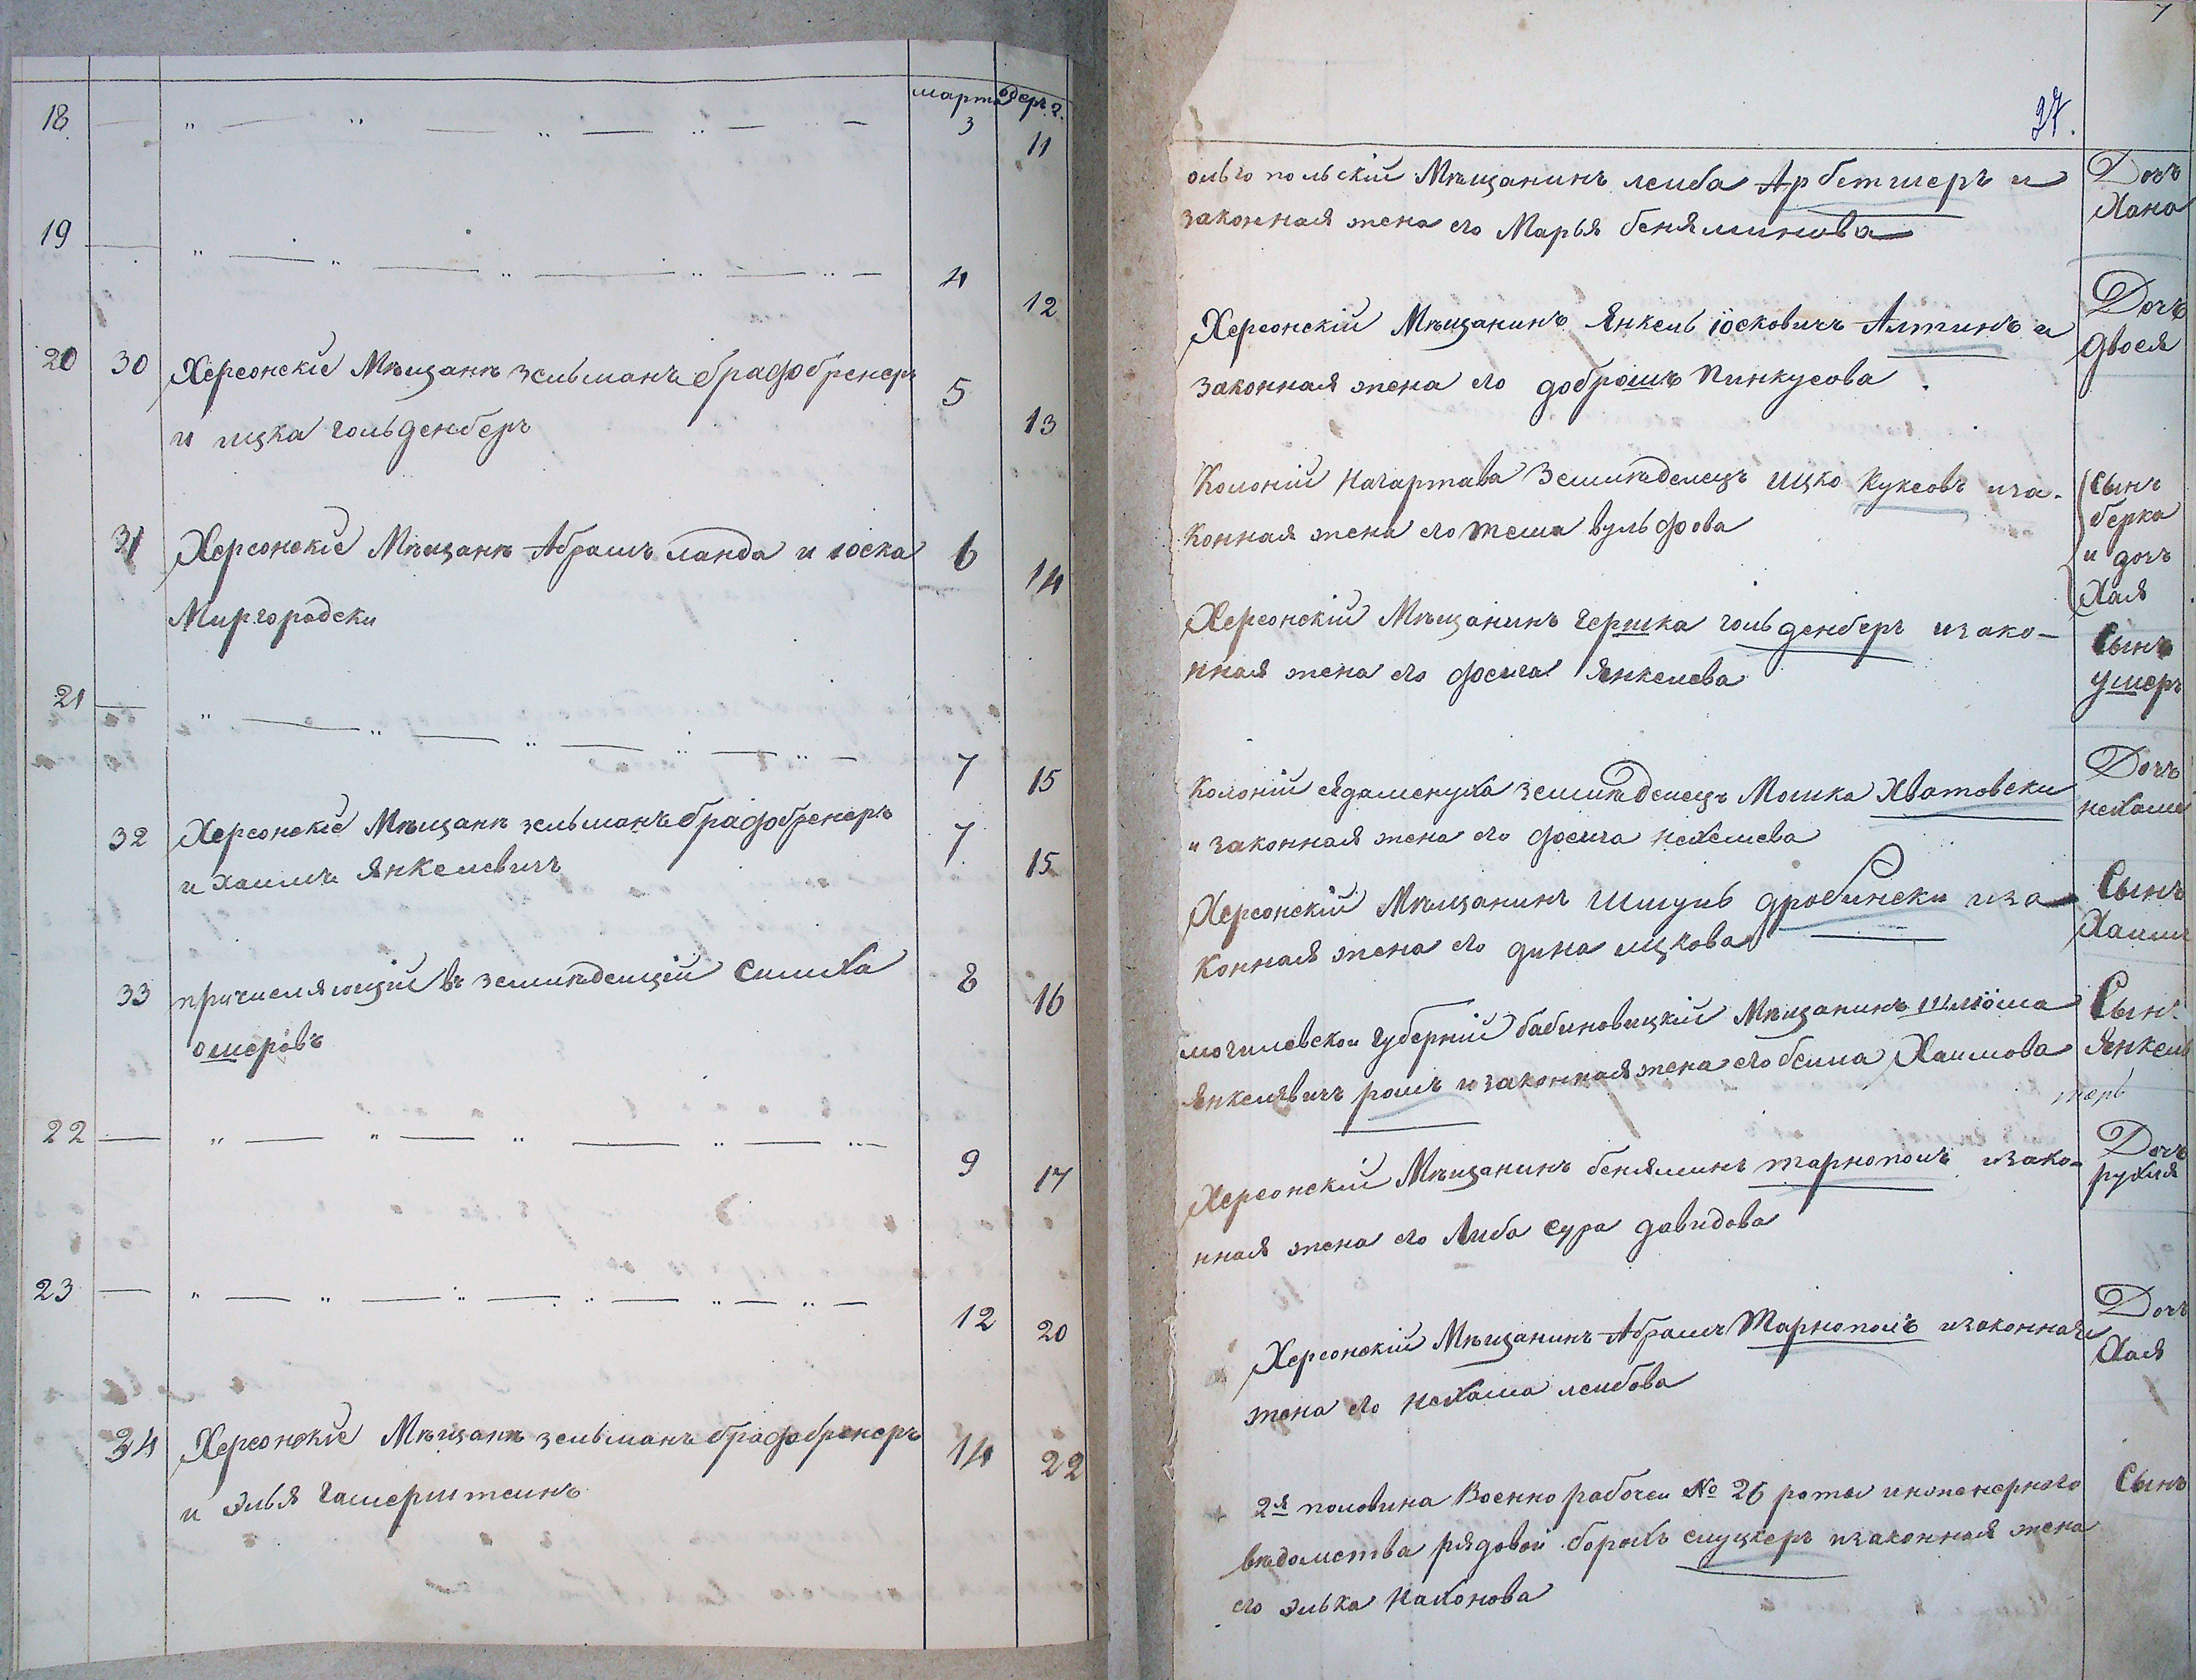 марта
одеръ 2.
18 — " — " — " — " — " — 3 11
19 — " — " — " — " — " — 4 12
20 30 Херсонскіе Мѣщанѣ зельманъ брафобренеръ 5 13
и ицка гольденберъ
31 Херсонскіе Мѣщанѣ Абрамъ ланда и іоска 6 14
Миргородски
21 — " — " — " — " — " — 7 15
32 Херсонскіе Мѣщанѣ зельманъ брафобренеръ 7 15
и хаимъ Янкелевичъ
33 причисляющій въ землѣделцій Симха 8 16
ошеровъ
22 — " — " — " — " — " — 9 17
23 — " — " — " — " — " — 12 20
34 Херсонскіе Мѣщанѣ зельманъ брафобренеръ 14 22
и Элья гамерштеинъ
7
27.
ольгопольскій Мѣщанинъ леиба Арбетмеръ и
законная жена его Марья беняминова
Дочъ
Хана
Херсонскій Мѣщанинъ Янкель іосковичъ Алтинъ и
законная жена его доброшъ Пинкусова.
Дочъ
двося
Колоній Нагартава Землѣделецъ Ицко Куксовъ иза-
конная жена его теша вульфова
Сынъ
берка
и дочъ
Хая
Херсонскій Мѣщанинъ гершка гольденберъ изако-
нная жена его феига Янкелева
Сынъ
ушеръ
Колоній Ядаменуха землѣделецъ Мошка Хватовски
и законная жена его феига нехемева
Дочъ
нехама
Херсонскій Мѣщанинъ Шмуль дробински иза-
конная жена его дина ицкова
Сынъ
Хаимъ
могилевскои Губерній бабиновицкій Мѣщанинъ шліома
Янкелявичъ ромъ и законная жена его беила Хаимова
Сынъ
Янкель
Херсонскій Мѣщанинъ беняминъ тарнополъ изако-
нная жена его Либа Сура давидова
Дочъ
рухля
Херсонскій Мѣщанинъ Абрамъ Тарнополъ изаконная
жена его Нехама леибова
Дочъ
Хая
2я половина Военно рабочеи № 26 роты инженерного
вѣдомства рядовои борохъ слуцкеръ изаконная жена
его элька Нахонова
Сынъ